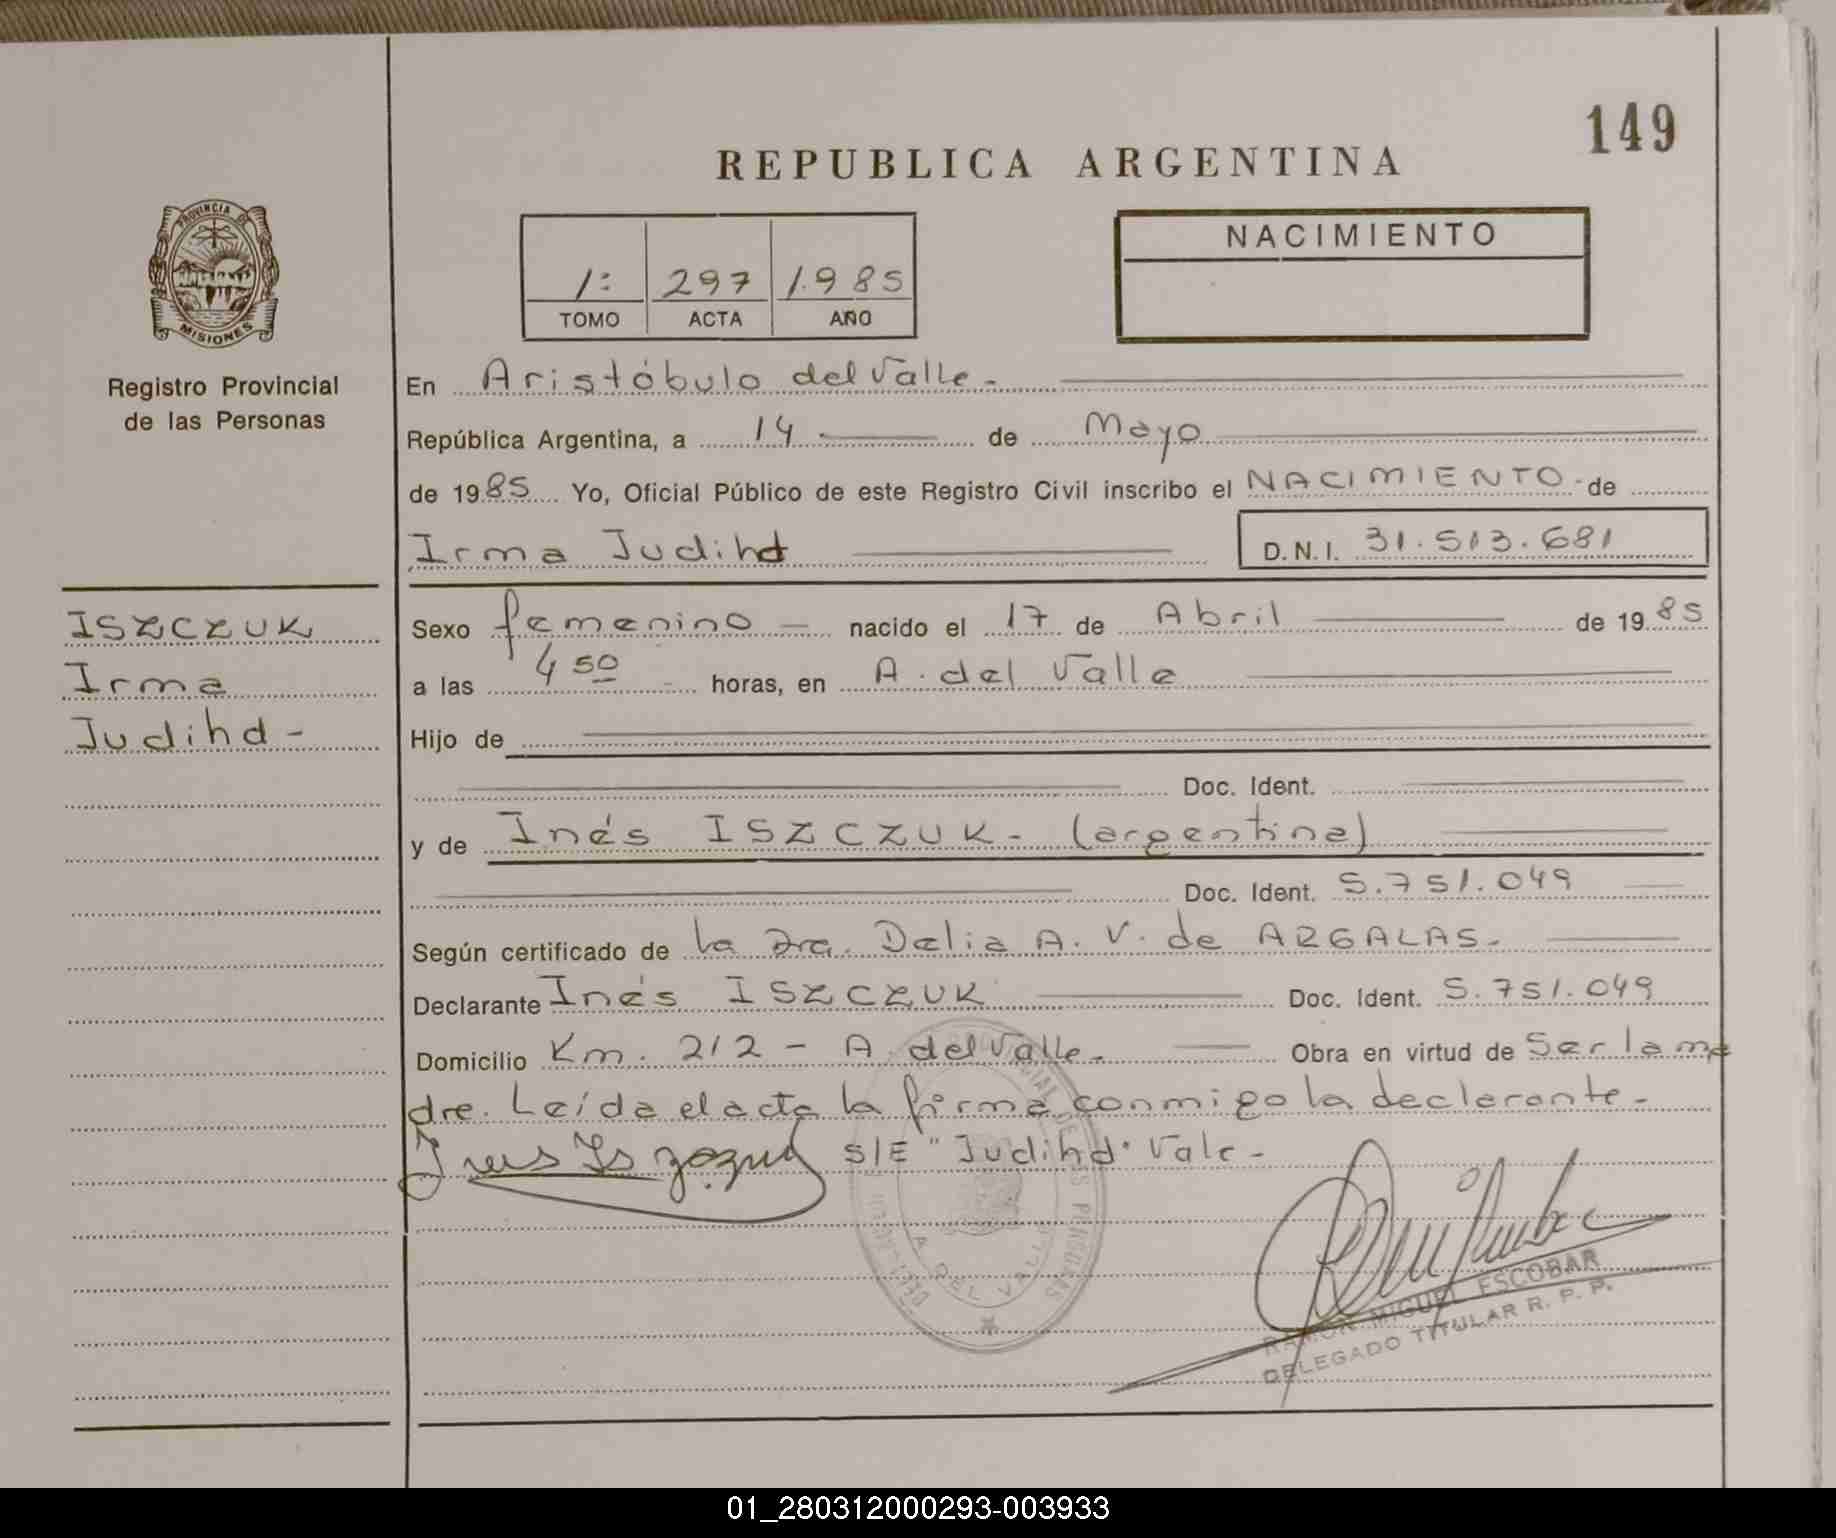 149
REPUBLICA ARGENTINA
PROVINCIA DE
MISIONES
Registro Provincial
de las Personas
1: 297 1.985
TOMO ACTA AÑO
NACIMIENTO
En Aristóbulo del Valle.-
República Argentina, a 14 de Mayo
de 1985 Yo, Oficial Público de este Registro Civil inscribo el NACIMIENTO-de
Irma Judihd
D.N.I. 31.513.681
ISZCZUK
Irma
Judihd-
Sexo femenino - nacido el 17 de Abril de 1985
a las 4 50 horas, en A. del Valle
Hijo de
Doc. Ident.
y de Inés ISZCZUK- (argentina)
Doc. Ident. 5.751.049
Según certificado de la Dra. Delia A. V. de ARGALAS-
Declarante Inés ISZCZUK Doc. Ident. 5.751.049
Domicilio Km. 212 - A. del Valle- Obra en virtud de Ser la ma
dre. Leída el acta la firma conmigo la declarante.-
S/E "Judihd" Vale-
RAMON MIGUEL ESCOBAR
DELEGADO TITULAR R. P. P.
01_280312000293-003933